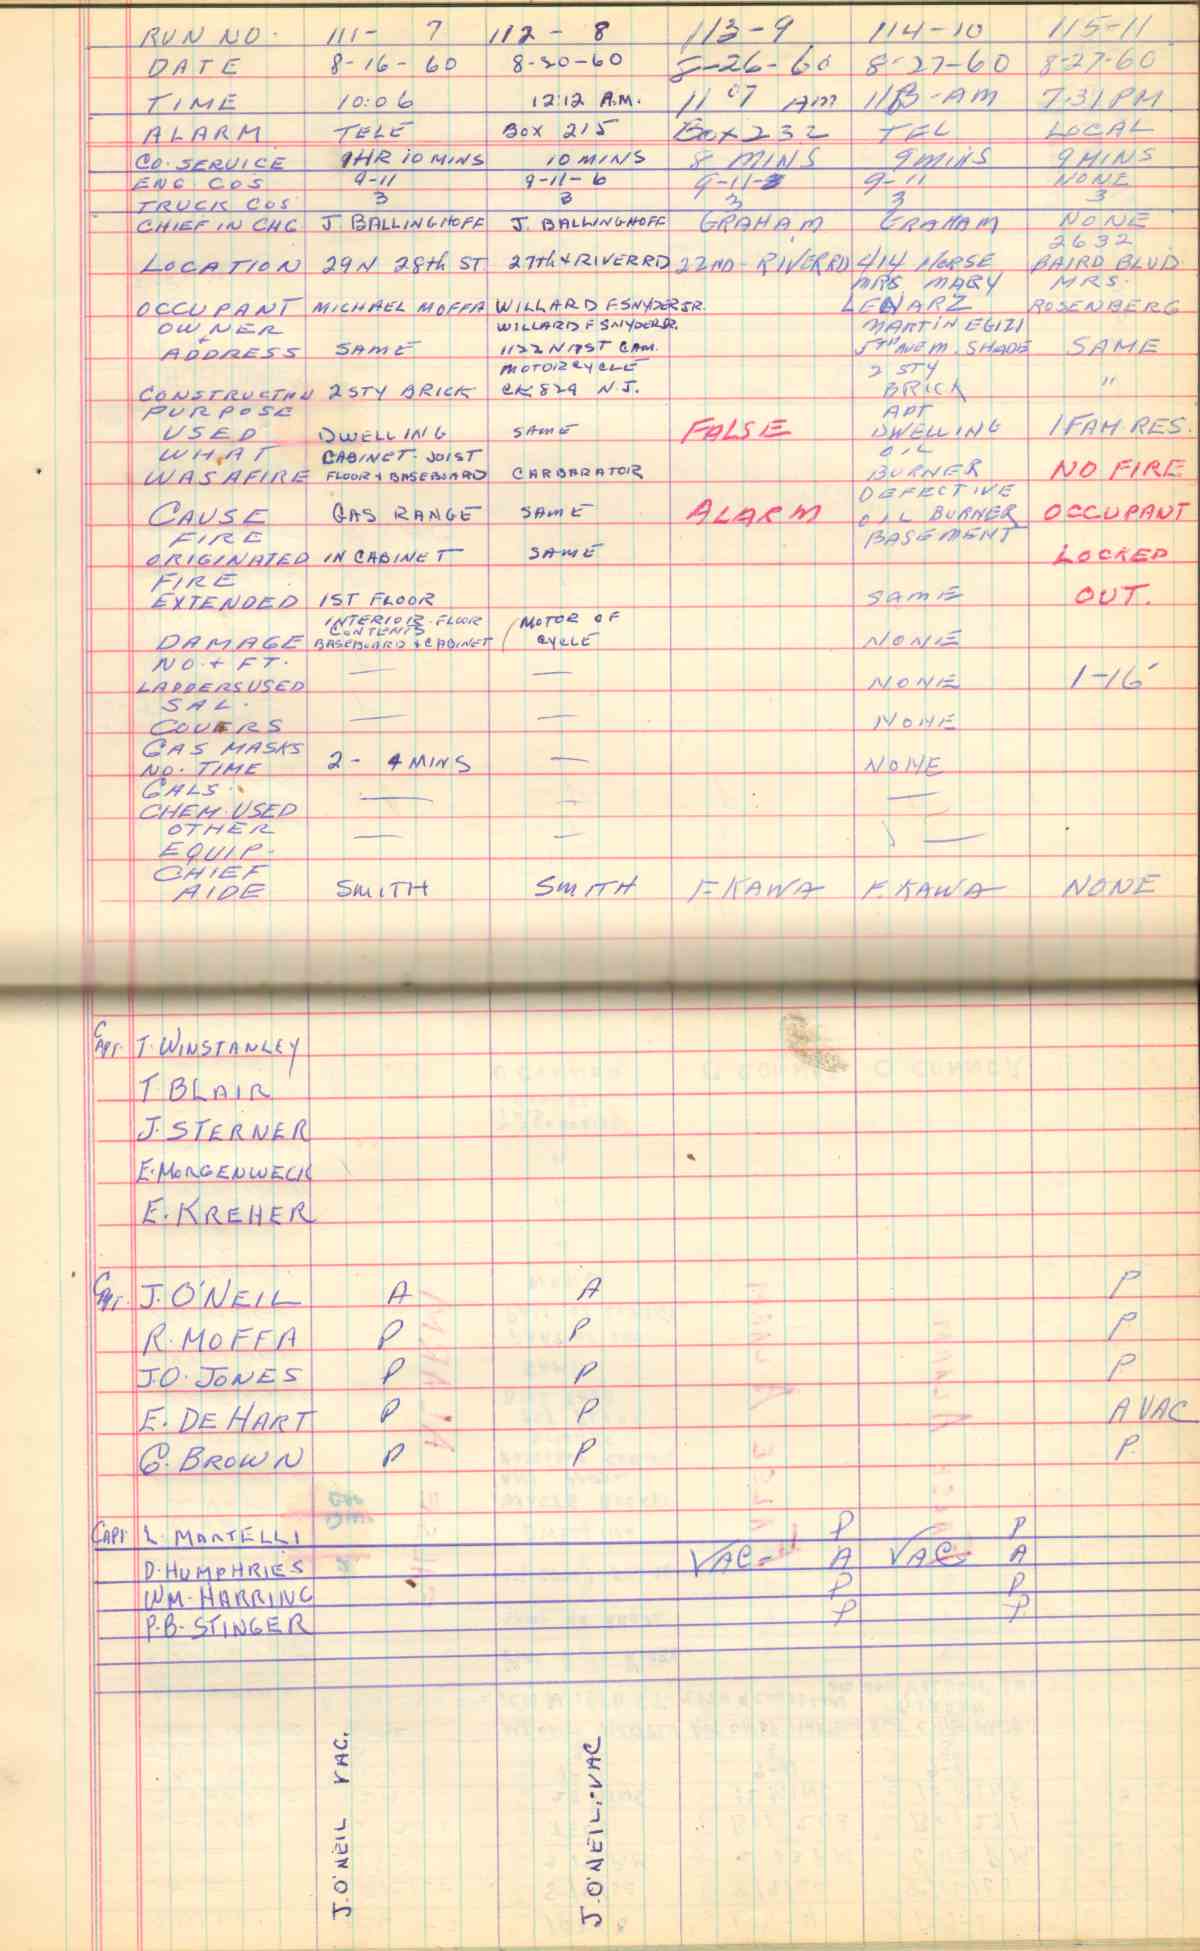 RUN NO. 111- 7 112 - 8 113-9 114-10 115-11
DATE 8-16-60 8-20-60 8-26-60 8-27-60 8-27-60
TIME 10:06 12:12 A.M. 11 07 AM 113 -AM 7:31 PM
ALARM TELE BOX 215 BOX 232 TEL LOCAL
CO. SERVICE 1HR 10 MINS 10 MINS 8 MINS 9 MINS 9 MINS
ENG COS 9-11 9-11-6 9-11- 9-11 NONE
TRUCK COS 3 3 3 3 3
CHIEF IN CHG J. BALLINGHOFF J. BALLINGHOFF GRAHAM GRAHAM NONE
2632
LOCATION 29 N 28th ST 27th & RIVER RD 22ND - RIVER RD 414 MORSE BAIRD BLVD
MRS MARY MRS.
OCCUPANT MICHAEL MOFFA WILLARD F SNYDER SR. LENARZ ROSENBERG
OWNER WILLARD F SNYDER SR. MARTIN EGIZI
& ADDRESS SAME 1122 N 19 ST CAM. 5TH AVE M. SHADE SAME
MOTORCYCLE 2 STY
CONSTRUCTION 2 STY BRICK CK 829 N.J. BRICK "
PURPOSE APT
USED DWELLING SAME FALSE DWELLING 1 FAM. RES.
WHAT CABINET-JOIST OIL
WAS AFIRE FLOOR & BASEBOARD CARBARATOR BURNER NO FIRE
DEFECTIVE
CAUSE GAS RANGE SAME ALARM OIL BURNER OCCUPANT
FIRE BASEMENT
ORIGINATED IN CABINET SAME LOCKED
FIRE
EXTENDED 1ST FLOOR SAME OUT.
INTERIOR-FLOOR MOTOR OF
CONTENTS
DAMAGE BASEBOARD & CABINET CYCLE NONE
NO. & FT. — —
LADDERS USED NONE 1-16'
SAL.
COVERS — — NONE
GAS MASKS
NO. TIME 2 - 4 MINS — NONE
GALS.
CHEM. USED — — —
OTHER
EQUIP. — — —
CHIEF
AIDE SMITH SMITH F. KAWA F. KAWA NONE
CAPT. T. WINSTANLEY
T BLAIR
J. STERNER
E. MORGENWECK
E. KREHER
CAPT. J. O'NEIL A A P
R. MOFFA P P P
J.O. JONES P P P
E. DE HART P P A VAC
G. BROWN P P P.
CAPT L. MARTELLI P P
D. HUMPHRIES VAC- A VAC- A
WM. HARRING P P
P.B. STINGER P P
J. O'NEIL VAC.
J. O'NEIL-VAC